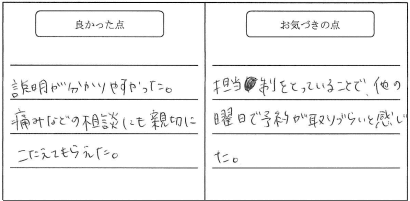 良かった点
説明が分かりやすかった。
痛みなどの相談にも親切に
こたえてもらえた。
お気づきの点
担当制をとっていることで、他の
曜日で予約が取りづらいと感じ
た。